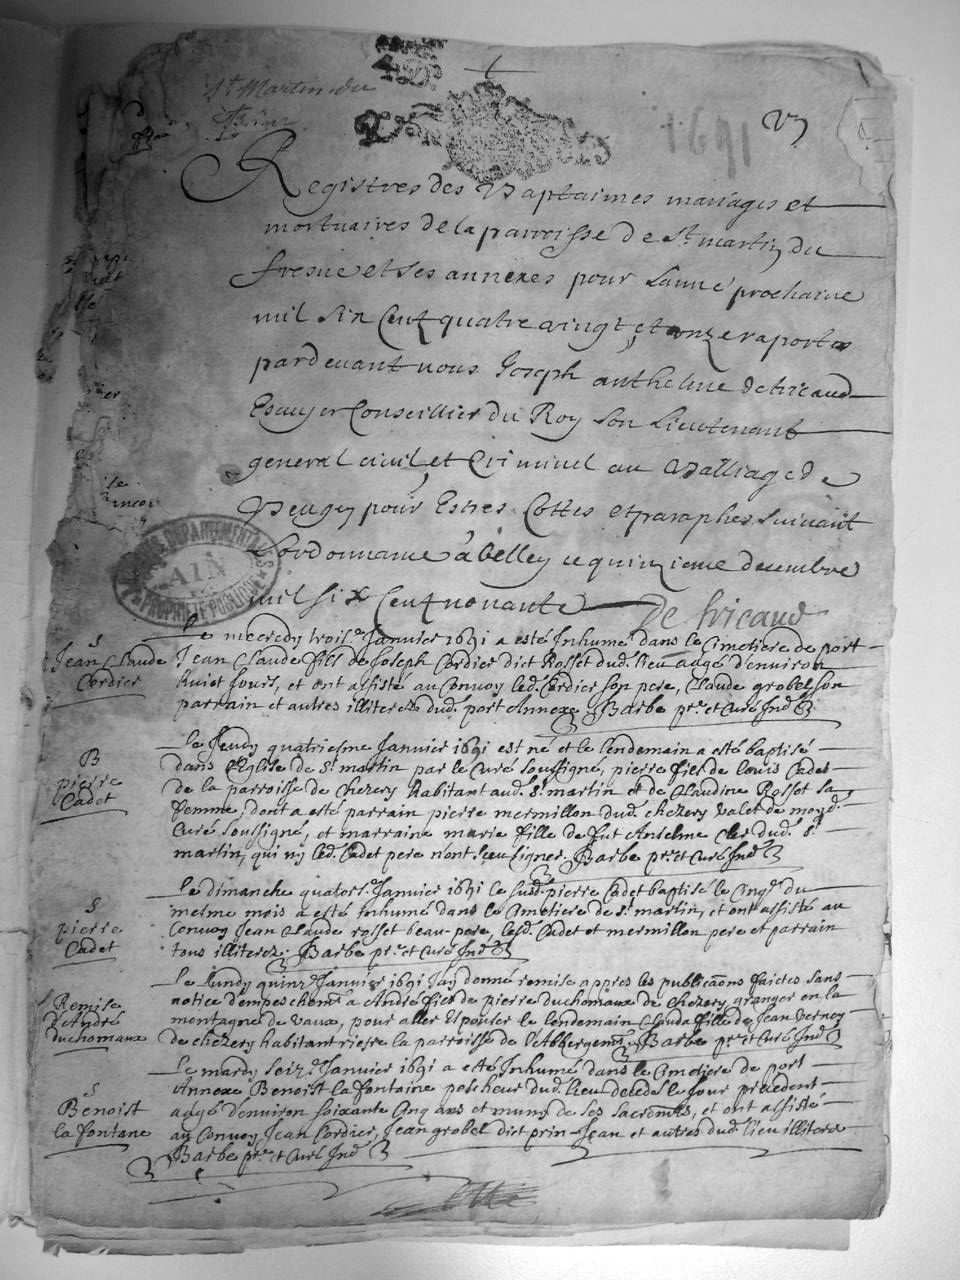 St Martin du
Fresne
1691
Registres des Baptaimes mariages et
mortuaires de la parroisse de St martin du
fresne et ses annexes pour Lanne prochaine
mil Six Cent quatre vingt et onze raportes
pardevant nous Joseph anthelme de fricaud
Escuyer Conseillier du Roy son Lieutenant
general civil et Criminel au Balliage de
Beugey pour Estres Cottes et paraphes suivant
Lordonnance à belley ce quinzieme decembre
mil six Cent nonante De fricaud
ARCHIVES DEPARTEMENTALES
AIN
PROPRIETE PUBLIQUE
S
Jean Claude
Cordier
Le mecredy trois.e Janvier 1691 a esté Inhumé dans le Cimetiere de port
Jean Claude fils de Joseph Cordier dict Rosset dud. lieu augé d'environ
huict Jours, et ont assisté au Convoy led. Cordier son pere, Claude grobel son
parrain et autres illiterez dud. port Annexe Barbe ptre et Curé Ind
B
pierre
Cadet
Le Jeudy quatriesme Janvier 1691 est né et le lendemain a esté baptisé
dans l'Eglise de St martin par le Curé soussigné, pierre fils de louis Cadet
de la parroisse de Chezery habitant aud. St martin et de Claudine Rosset sa
femme, dont a esté parrain pierre mermillon dud. chezery valet de moyd.
Curé soussigné, et marraine marie fille de fut Anselme cler dud. St
martin, qui ny led. Cadet pere n'ont sceu signer. Barbe ptre et Curé Ind
S
pierre
Cadet
Le dimanche quators.e Janvier 1691 le susd. pierre Cadet baptisé le Cinq.e du
mesme mois a esté Inhumé dans le Cimetiere de St martin, et ont assisté au
Convoy Jean Claude rosset beau-pere, lesd. Cadet et mermillon pere et parrain
tous illiterez. Barbe ptre et Curé Ind
Remise
d'André
duchomaux
Le Lundy quinz.e Janvier 1691 Jay donné remise appres les publicaons faictes sans
notice d'empeschem.t a André fils de pierre duchomaux de chezery, granger en la
montagne de vaux, pour aller Espouser le lendemain Clauda fille de Jean vernoy
de chezery habitant riere la parroisse de l'Abbergem.t Barbe ptre et Curé Ind
S
Benoist
la fontane
Le mardy seiz.e Janvier 1691 a esté Inhumé dans le Cimetiere de port
Annexe Benoist la fontaine pescheur dud. lieu decedé le Jour precedent
augé d'environ soixante Cinq ans et muny de ses sacrem.ts, et ont assisté
au Convoy Jean Cordier, Jean grobel dict prin-Jean et autres dud. lieu illiterez
Barbe ptre et Curé Ind